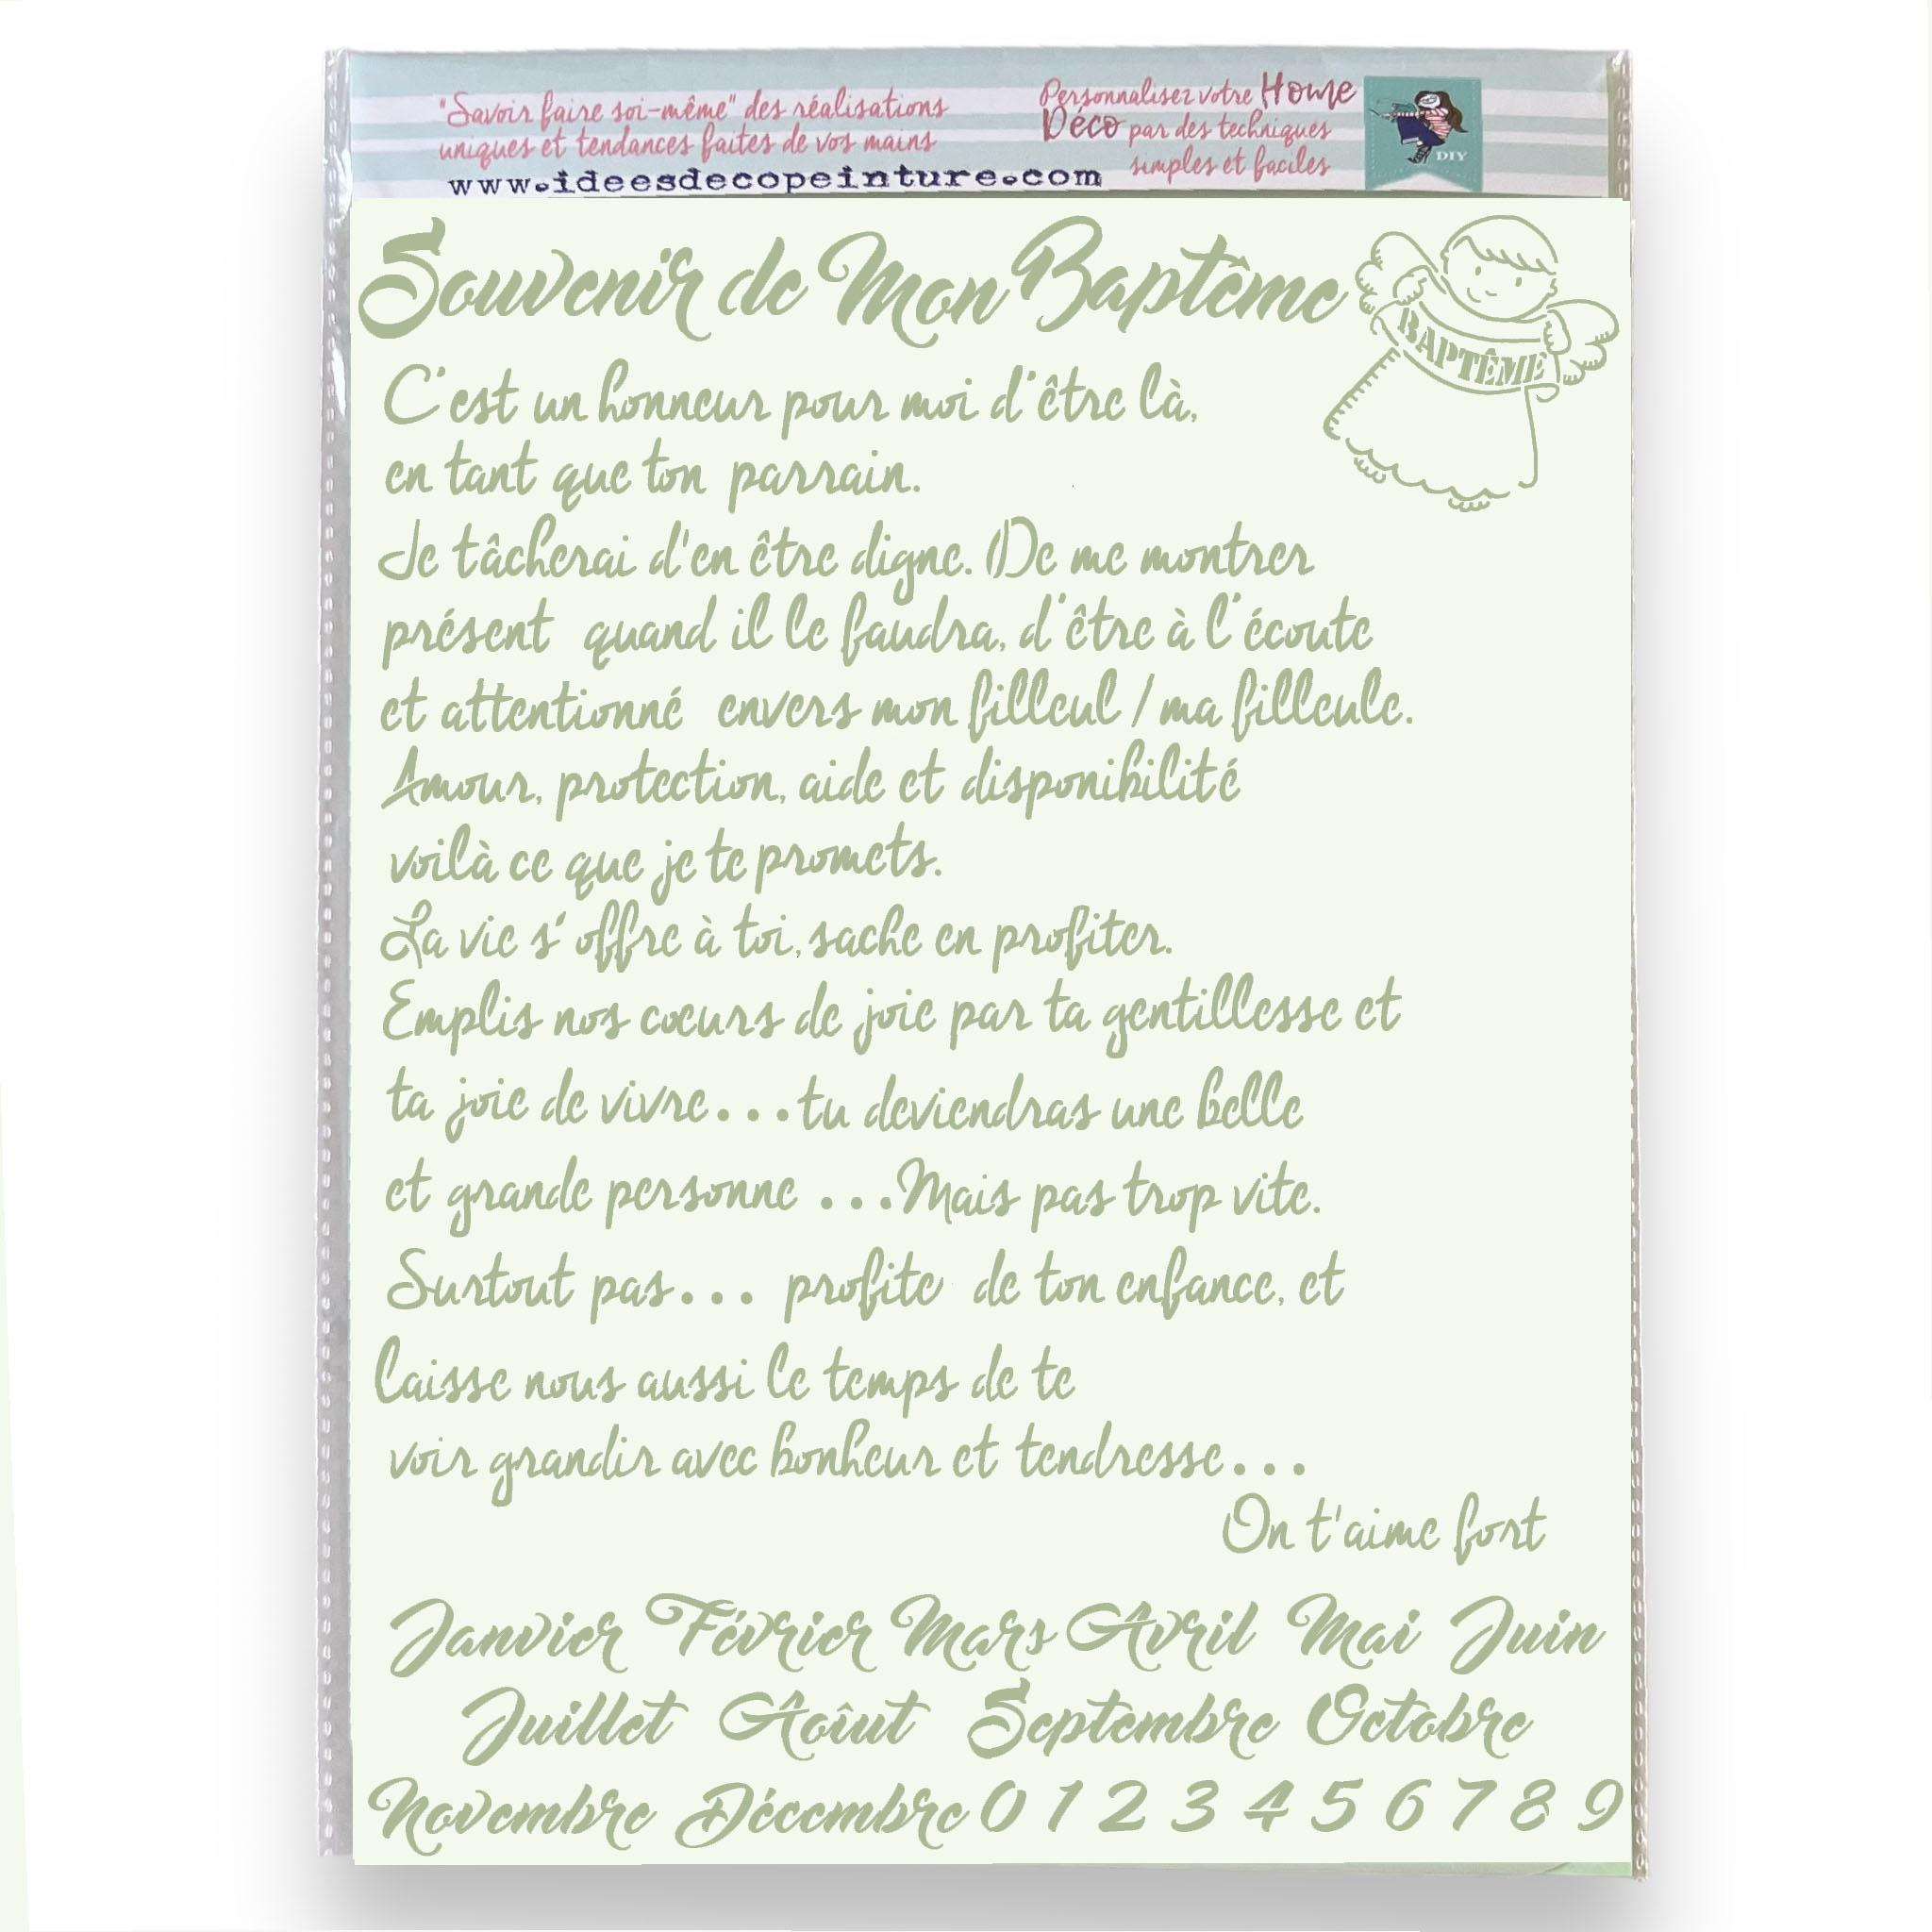 "Savoir faire soi-même" des réalisations
uniques et tendances faites de vos mains
www.ideesdecopeinture.com
Personnalisez votre Home
Déco par des techniques
simples et faciles
DIY
Souvenir de Mon Baptême
BAPTÊME
C'est un honneur pour moi d'être là,
en tant que ton parrain.
Je tâcherai d'en être digne. De me montrer
présent quand il le faudra, d'être à l'écoute
et attentionné envers mon filleul / ma filleule.
Amour, protection, aide et disponibilité
voilà ce que je te promets.
La vie s'offre à toi, sache en profiter.
Emplis nos cœurs de joie par ta gentillesse et
ta joie de vivre...tu deviendras une belle
et grande personne ...Mais pas trop vite.
Surtout pas... profite de ton enfance, et
laisse nous aussi le temps de te
voir grandir avec bonheur et tendresse...
On t'aime fort
Janvier Février Mars Avril Mai Juin
Juillet Aoîut Septembre Octobre
Novembre Décembre 0 1 2 3 4 5 6 7 8 9